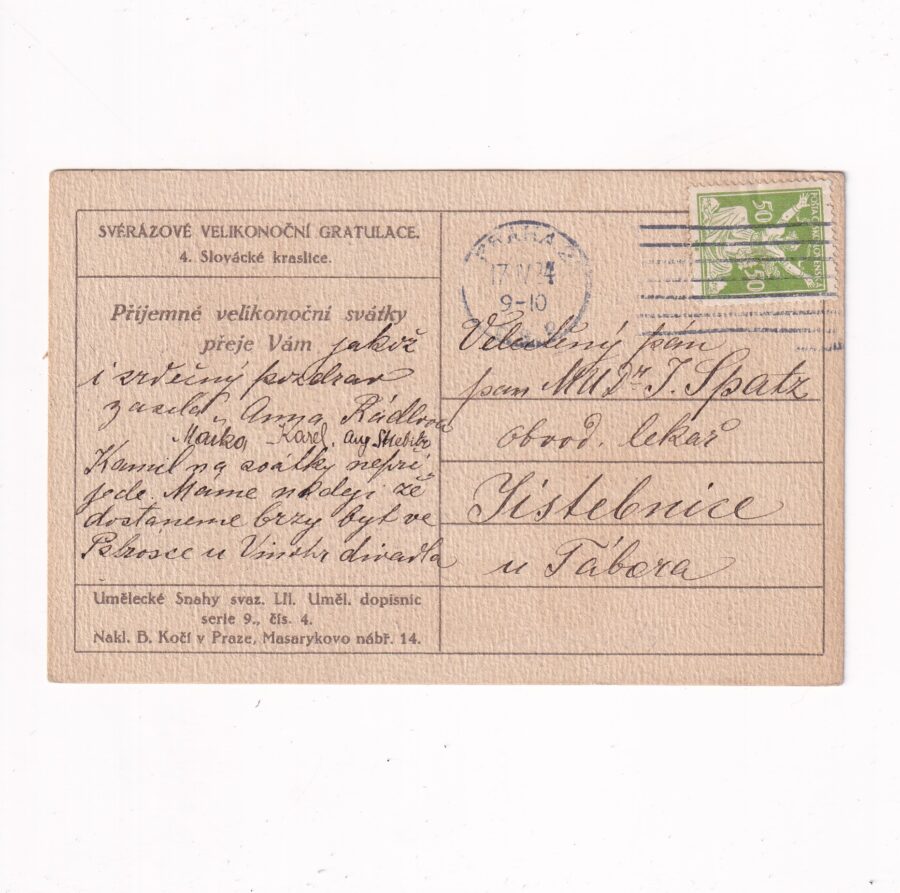 SVÉRÁZOVÉ VELIKONOČNÍ GRATULACE.
4. Slovácké kraslice.
Příjemné velikonoční svátky
přeje Vám jakož
i srdečný pozdrav
zasílá Anna Rádlova
Mařka, Karel,
Kamil na svátky nepři-
jede. Máme naději že
dostaneme brzy byt ve
u Vinohr divadla
Umělecké Snahy svaz. LII. Uměl. dopisnic
serie 9., čís. 4.
Nakl. B. Kočí v Praze, Masarykovo nábř. 14.
PRAHA
17.IV.24
9-10
POŠTA ČESKOSLOVENSKÁ
50
50
Velectěný pán
pan MUDr. J. Špatz
obvod. lékař
Jistebnice
u Tábora